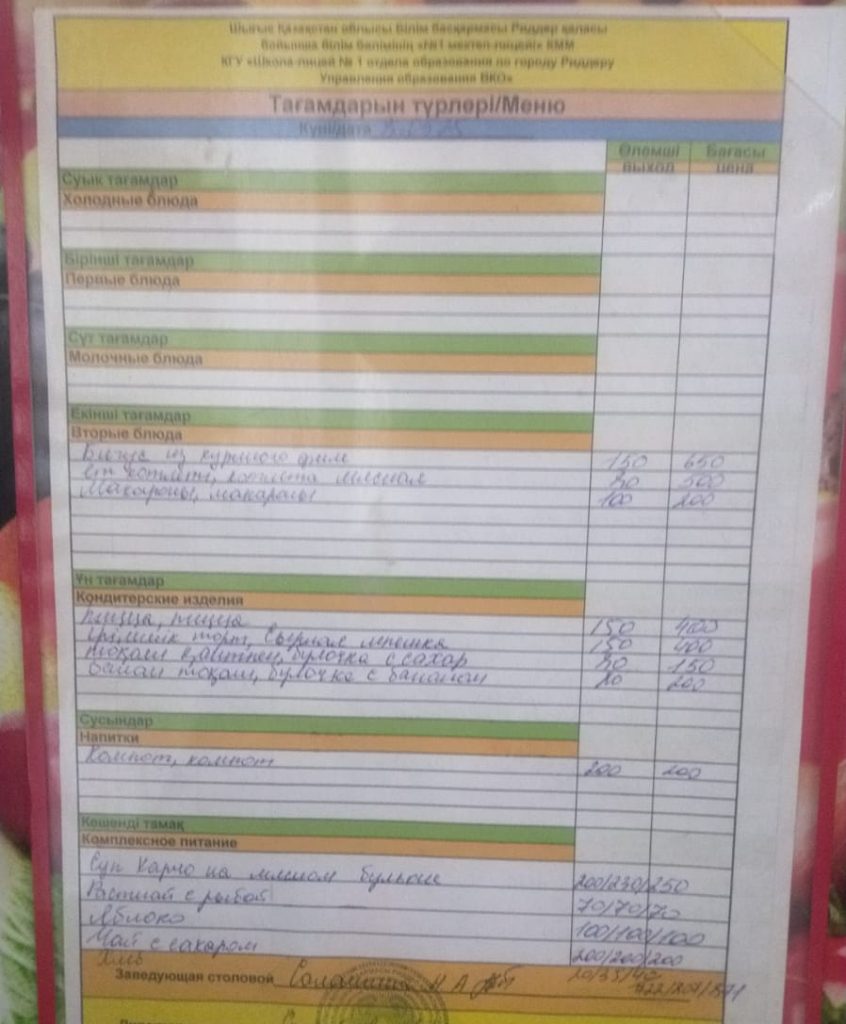 Шығыс Қазақстан облысы Білім басқармасы Риддер қаласы
бойынша білім бөлімінің «№1 мектеп-лицейі» КММ
КГУ «Школа-лицей № 1 отдела образования по городу Риддеру
Управления образования ВКО»
Тағамдарың түрлері/Меню
Күні/дата
Өлемші Бағасы
выход цена
Суық тағамдар
Холодные блюда
Бірінші тағамдар
Первые блюда
Сүт тағамдар
Молочные блюда
Екінші тағамдар
Вторые блюда
из куриного филе 150 650
котлеті, котлета мясная 500
Макароны, макароны 100 200
Ұн тағамдар
Кондитерские изделия
пицца, пицца 150 400
Ірімшік торт, Сырная лепешка 150 400
тоқаш қантпен, булочка с сахар 150
банан тоқаш, булочка с бананом 200
Сусындар
Напитки
Компот, компот 200 200
Кешенді тамақ
Комплексное питание
Суп Харчо на мясном бульоне 200/230/250
с рыбой 70/70/70
Яблоко 100/100/100
Чай с сахаром 200/200/200
Хлеб 20/35/40
Заведующая столовой